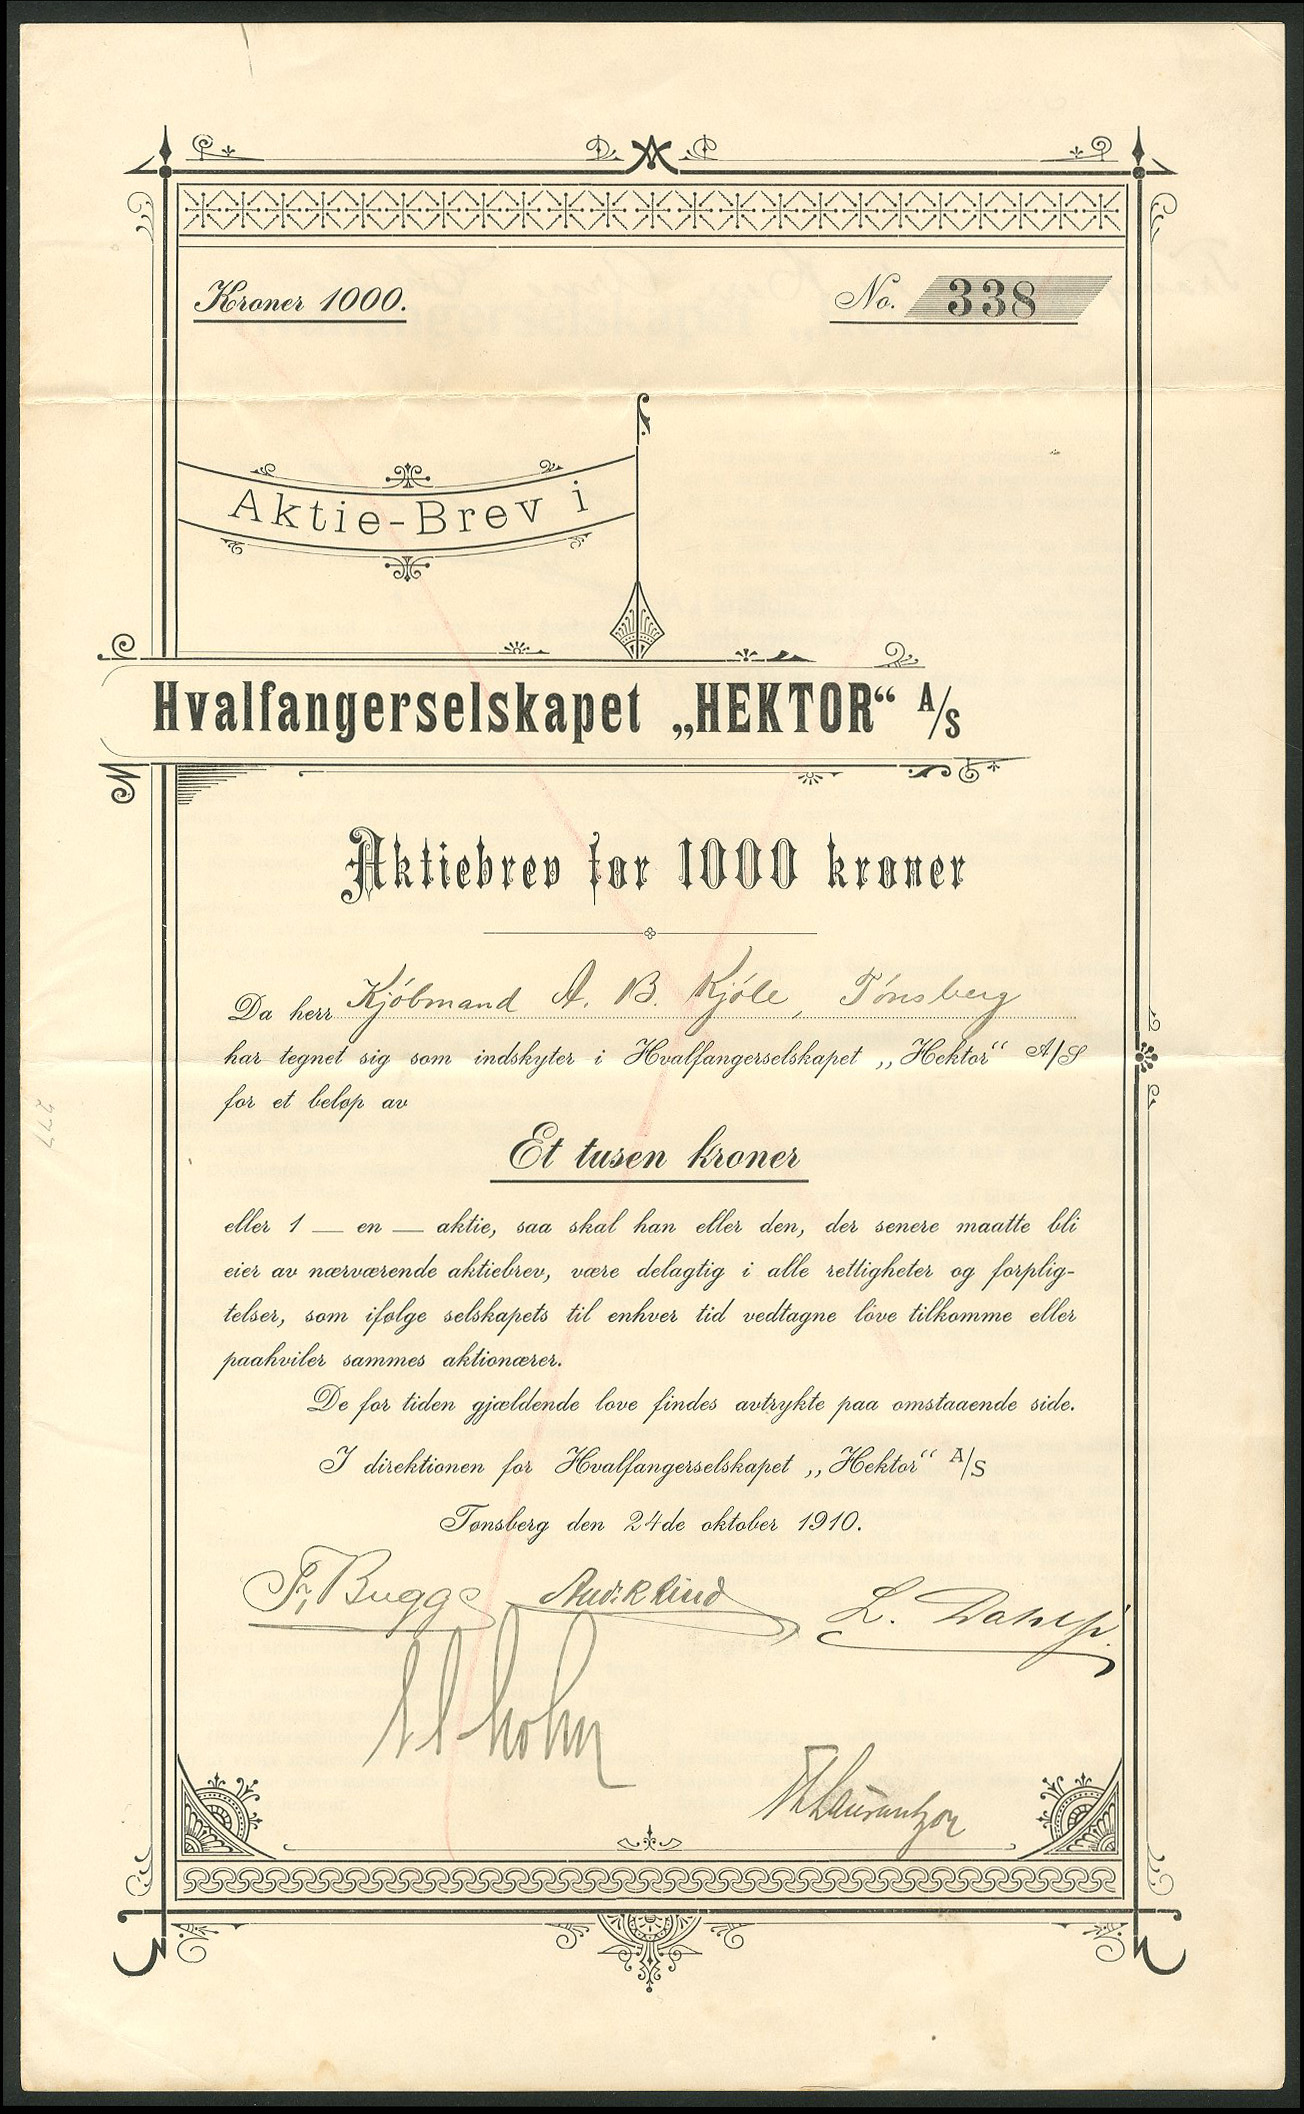 Kroner 1000.
No. 338
Aktie-Brev i
Hvalfangerselskapet „HEKTOR“ A/S
Aktiebrev for 1000 kroner
Da herr Kjöbmand A. B. Kjöle, Tönsberg
har tegnet sig som indskyter i Hvalfangerselskapet „Hektor“ A/S
for et beløp av
Et tusen kroner
eller 1 — en — aktie, saa skal han eller den, der senere maatte bli
eier av nærværende aktiebrev, være delagtig i alle rettigheter og forplig-
telser, som ifølge selskapets til enhver tid vedtagne love tilkomme eller
paahviler sammes aktionærer.
De for tiden gjældende love findes avtrykte paa omstaaende side.
I direktionen for Hvalfangerselskapet „Hektor“ A/S
Tønsberg den 24de oktober 1910.
Fr. Bugge
L. Dahl
N Bohn
277